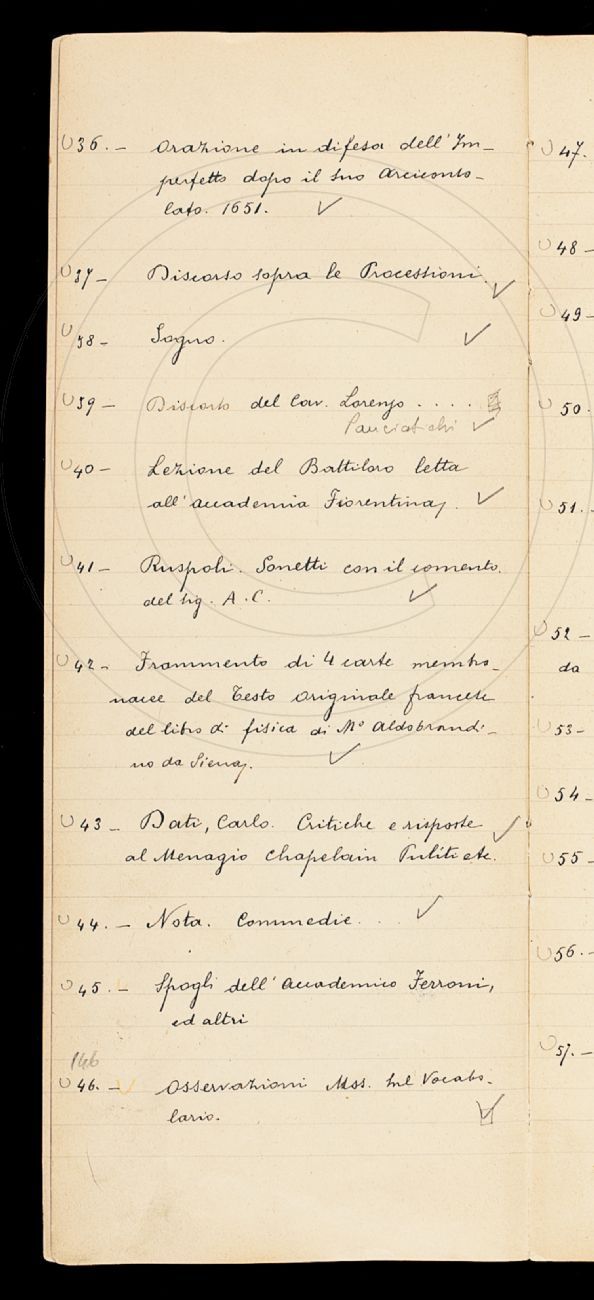 36. - Orazione in difesa dell'Im-
perfetto dopo il suo Arciconso-
lato. 1651.
37 - Discorso sopra le Processioni.
38 - Sogno.
39 - Discorso del Cav. Lorenzo . . . .
Panciatichi
40 - Lezione del Battiloro letta
all'accademia Fiorentina.
41 - Ruspoli. Sonetti con il comento
del sig. A. C.
42 - Frammento di 4 carte membra-
nacee del Testo originale francese
del libro di fisica di Mº Aldobrandi-
no da Siena.
43 - Dati, Carlo. Critiche e risposte
al Menagio Chapelain etc.
44. - Nota. Commedie . . .
45. - Spogli dell'Accademico Ferroni,
ed altri
146
46. - Osservazioni Mss. sul Vocabo-
lario.
47.
48 -
49 -
50.
51.
52 -
da
53 -
54 -
55 -
56. -
57. -